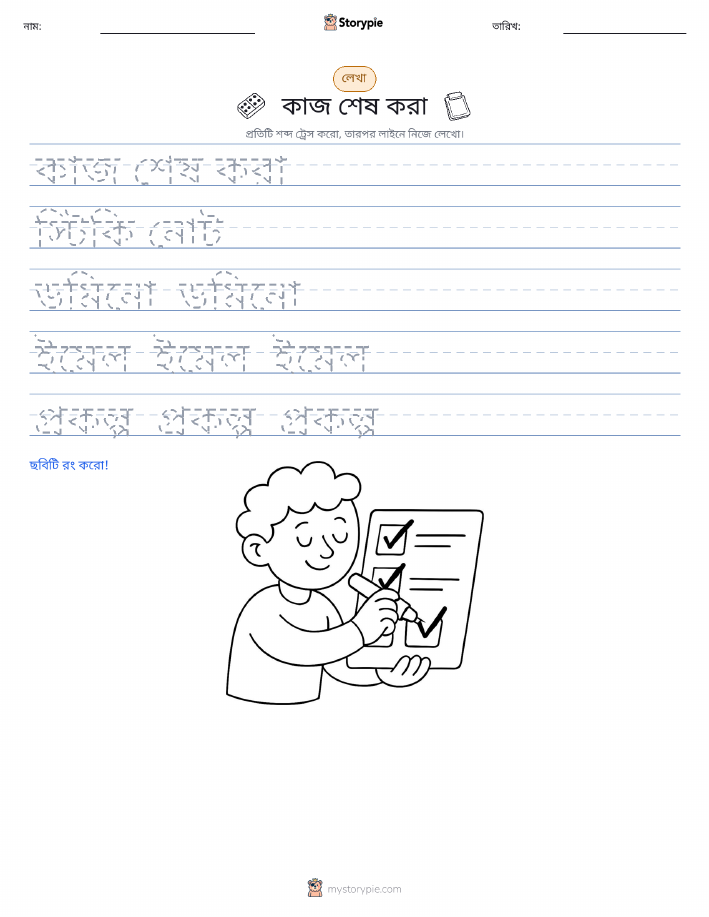 নাম:
Storypie
তারিখ:
লেখা
কাজ শেষ করা
প্রতিটি শব্দ ট্রেস করো, তারপর লাইনে নিজে লেখো।
কাজ শেষ করা
স্টিকি নোট
ডমিনো ডমিনো
ইমেল ইমেল ইমেল
প্রকল্প প্রকল্প প্রকল্প
ছবিটি রং করো!
mystorypie.com